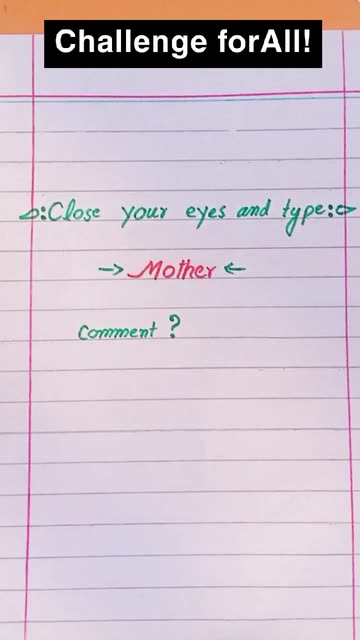 Challenge forAll!
:Close your eyes and type:
→ Mother ←
Comment ?